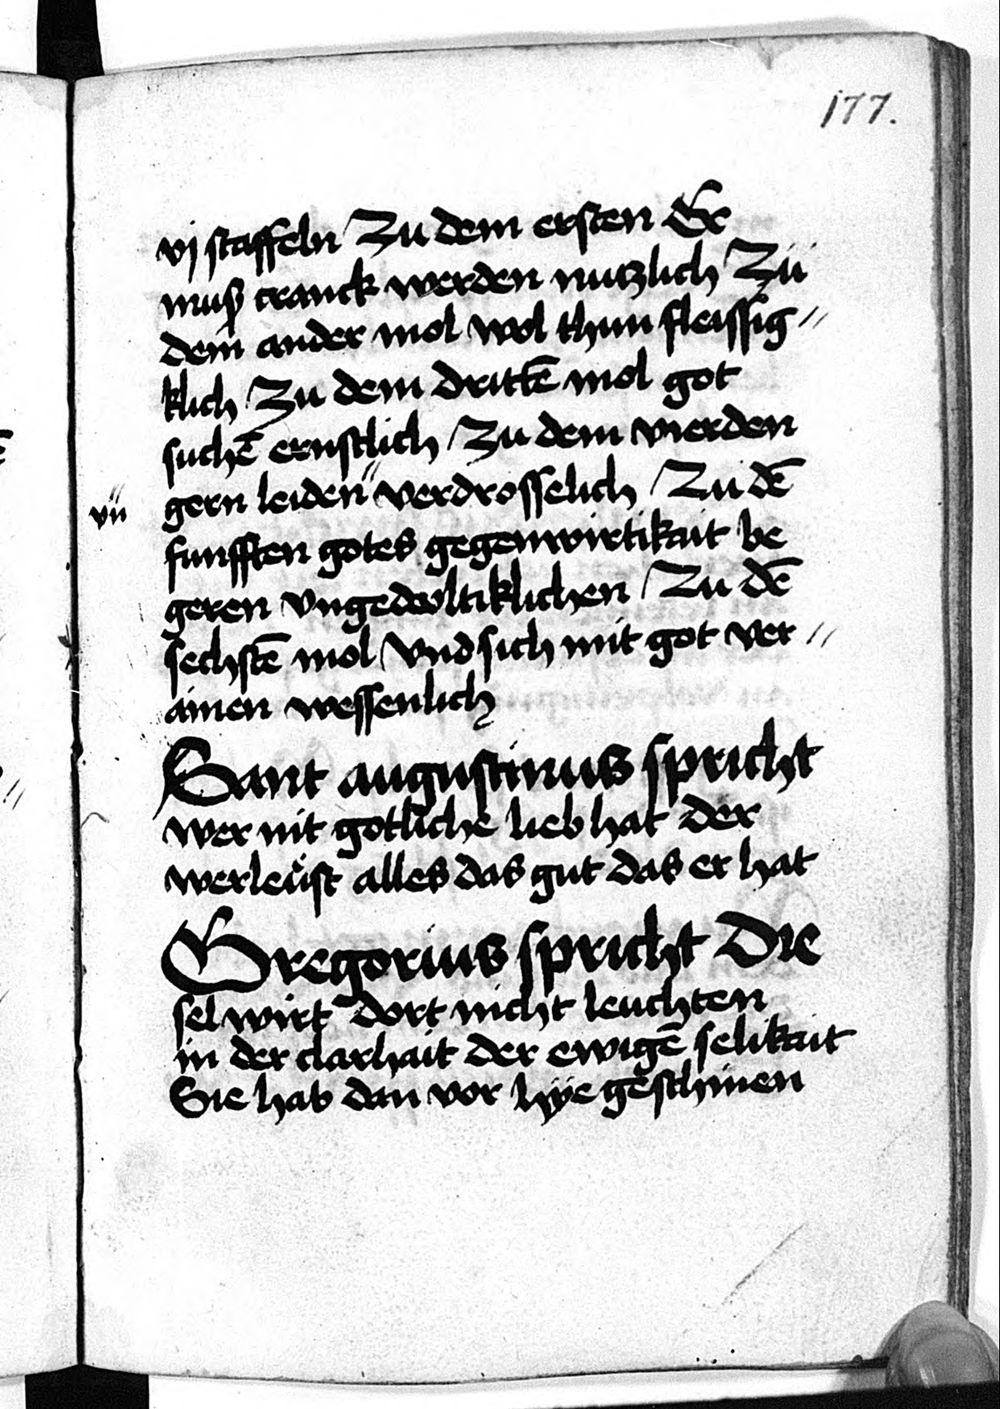 177.
vj staffeln Zu dem ersten Er
muß cranck werden nutzlich Zü
dem ander mol wol thun fleissig〃
klich Zu dem drittē mol got
suchē ernstlich Zu dem vierden
gern leiden〃verdrosselich Zu dē
vn〃
funfften gotes gegenwirtikait be
geren vngedwltiklichen Zu dē
sechstē mol Vnd sich mit got ver〃
ainen wessenlich
Sant augustinus spricht
wer nit gotliche lieb hat der
werleüst alles das gut das er hat
Gregorius spricht Die
sel wirt dort nicht leuchten
in der clarhait der ewigē selikait
Sie hab dan vor hÿe geschinen